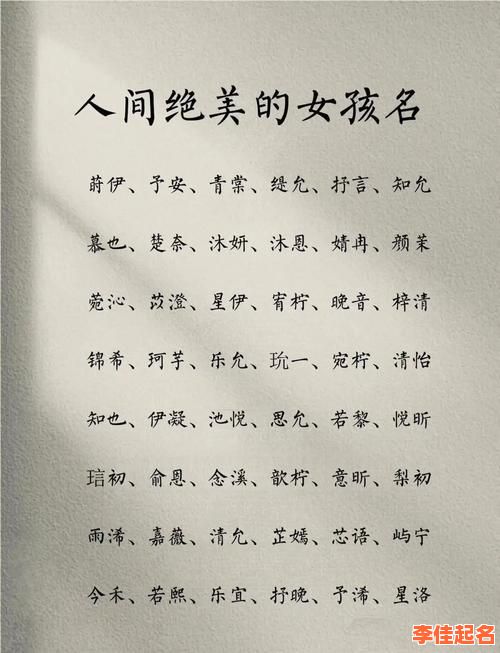 人间绝美的女孩名
莳伊、予安、青棠、缇允、抒言、知允
慕也、楚奈、沐妍、沐恩、婧冉、颜茉
菀沁、苡澄、星伊、宥柠、晚音、梓清
锦希、珂芋、乐允、玧一、宛柠、清怡
知也、伊凝、池悦、思允、若黎、悦昕
琂初、俞恩、念溪、歆柠、意昕、梨初
雨浠、嘉薇、清允、芷嫣、芯语、屿宁
今禾、若熙、乐宜、抒晚、予浠、星洛
李佳起名